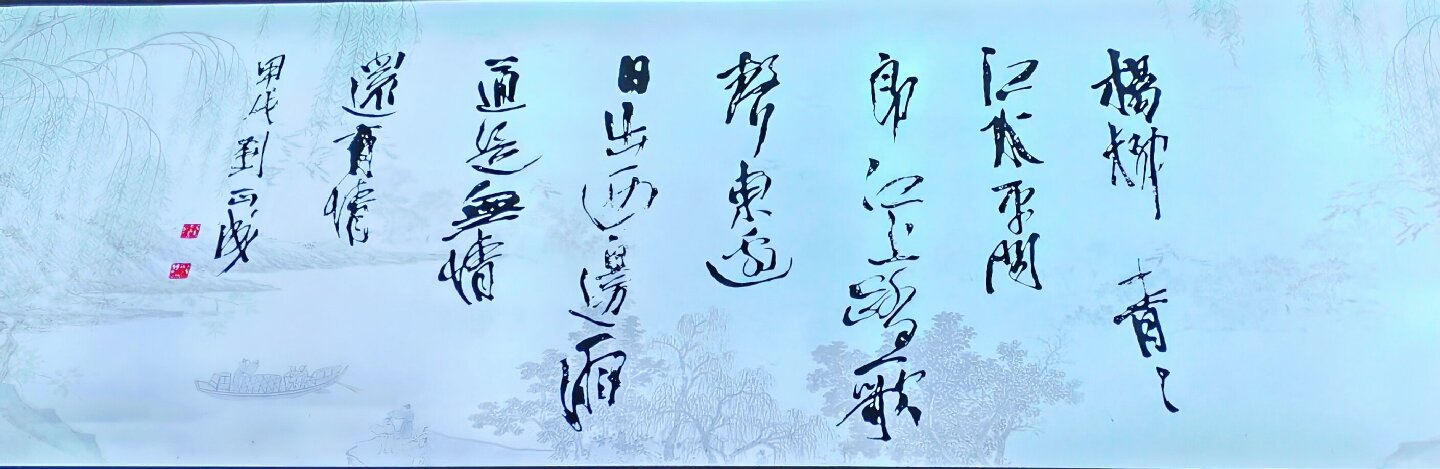 楊柳青〻
江水平聞
郎江上踏歌
聲東邊
日出西邊雨
道是無情
還有情
甲辰劉正成